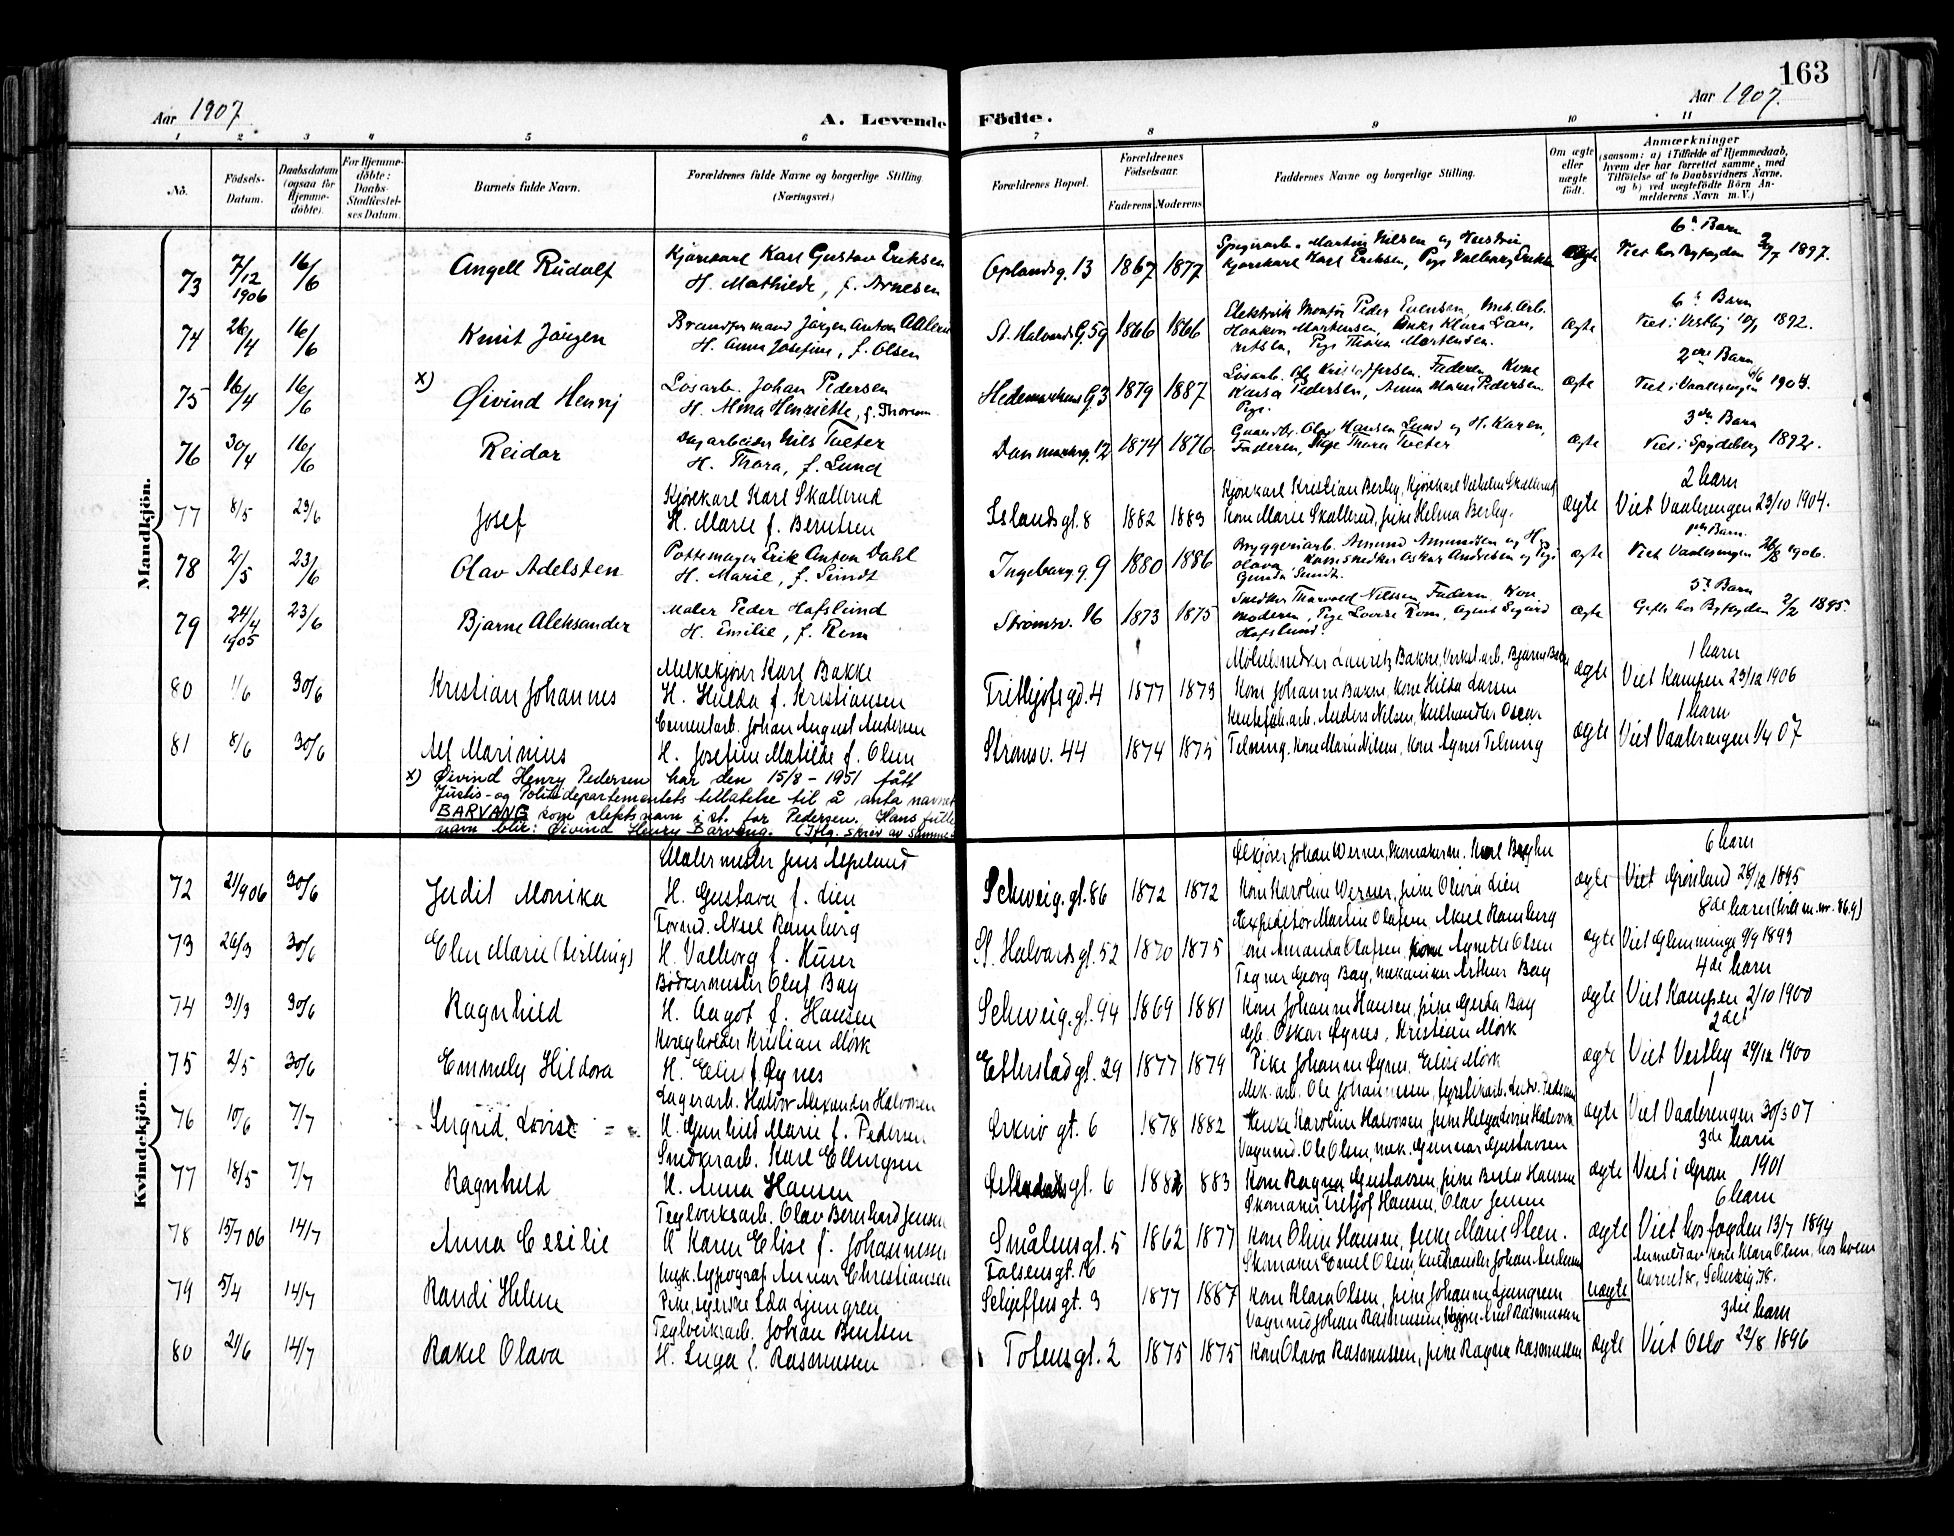 163
Aar 1907
A. Levende
Födte.
Aar 1907.
1 2 3 4 5 6 7 8 9 10 11
No.
Födsels-Datum.
Daabsdatum (ogsaa for Hjemme-döbte).
For Hjemme-döbte: Daabs-Stadfæstel-ses Datum.
Barnets fulde Navn.
Forældrenes fulde Navne og borgerlige Stilling
(Næringsvei.)
Forældrenes Bopæl.
Forældrenes Födselsaar.
Faderens Moderens
Faddernes Navne og borgerlige Stilling.
Om ægte eller uægte födt.
Anmærkninger
(saasom: a) i Tilfælde af Hjemmedaab, hven der har forrettet samme, med Tilföielse af to Daabsvidners Navne, og b) ved uægtefödte Börn An-melderens Navn m. V.)
Mandkjön.
73 7/12 1906 16/6 Angell Rudolf
Kjørekarl Karl Gustav Eriksen
H. Mathilde, f. Arnesen
Oplandsg. 13 1867 1877
Martin Nilsen og Hustru
Kjørekarl Karl Eriksen, Pige Valborg Eriksen
ægte
6te Barn
Viet hos Byfogden 1897.
74 26/4 16/6 Knut Jørgen
Brandformand Jørgen Anton
H. Anna Josefine, f. Olsen
St. Halvards G. 59 1866 1866
Elektrik Montør Peder Evensen,
Haakon Martensen, Enke Klara
Pige Thora Mortensen.
ægte
6te Barn
Viet i Vestby 10/1 1892.
75 16/4 16/6 x) Øivind Henry
Løsarb. Johan Pedersen
H. Alma Henriette, f.
Hedemarkens G. 3 1879 1887
Løsarb. Faderen Kone
Pedersen, Anna Marie Pedersen
Pige.
ægte
2det Barn
Viet i Vaalerengen 1904.
76 30/4 16/6 Reidar
Dagarbeider Nils Tveter
H. Thora, f. Lund
Danmarksg. 12 1874 1876
Olav Hansen Lund og H. Karen,
Faderen, Pige Thora Tveter
ægte
3die Barn
Viet i Spydeberg 1892.
77 8/5 23/6 Josef
Kjørekarl Karl Skallerud
H. Marie f. Berntsen
Islandsgt. 8 1882 1883
Kjørekarl Kristian Berby, Kjørekarl Vilhelm Skallerud
Kone Marie Skallerud, pike Helma Berby.
ægte
2 barn
Viet Vaalerengen 23/10 1904.
78 2/5 23/6 Olav Adelsten
Pottemager Erik Anton Dahl
H. Marie, f. Sundt
Ingeborg g. 9 1880 1886
Bryggeriarb. Amund Amundsen og H.
Olava, Snedker Oskar Andresen og Pige
Gunda Sundt.
ægte
1ste Barn.
Viet Vaalerengen 26/8 1906.
79 24/4 1905 23/6 Bjarne Aleksander
Maler Peder Hafslund
H. Emilie, f. Rom
Strømsv. 16 1873 1875
Snedker Thorvald Nilssen, Faderen
Moderen, Pige Lovise Rom, Agent Sigurd
Hafslund.
ægte
5te Barn
Gifte hos Byfogden 2/2 1895.
80 1/6 30/6 Kristian Johannes
Melkekjører Karl Bakke
H. Hulda f. Kristiansen
Frithjofsgd. 4 1877 1873
Møbelsnedker Lauritz Bakke, Verkst.arb. Bjarne
Kone Johanne Bakke, Kone Hilda Larsen
ægte
1 barn
Viet Kampen 23/12 1906
81 8/6 30/6 Alf Marinius
Cementarb. Johan August Andersen
H. Josefine Matilde f. Olsen
Strømsv. 44 1874 1875
Anders Nilsen, Kulhandler Oscar
Telning, Kone Marie Nilsen, Kone Agnes Telning
ægte
1 barn
Viet Vaalerengen 1/4 07
x) Øivind Henry Pedersen har den 15/8 - 1951 fått
Justis- og Politidepartementets tillatelse til å anta navnet
BARVANG som slektsnavn i st. for Pedersen. Hans fulle
navn blir: Øivind Henry Barvang. (Iflg. skriv av samme
Kvindekjön.
72 21/9 06 30/6 Judit Monika
Malermester Jens
H. Gustava f. Lien
Schweig.gt. 86 1872 1872
Johan Werner, Skomakersv. Karl
Kone Karoline Werner, pike Olivia Lien
ægte
6 barn
Viet Grønland 26/12 1895
73 26/3 30/6 Elen Marie (tvilling)
Formd. Aksel Ramberg
H. Valborg f. Huser
St. Halvards gt. 52 1870 1875
Expeditør Martin Olafsen, Aksel Ramberg
Amanda Olafsen, Kone Agnette Olsen
ægte
8de barn
Viet Glemminge 9/9 1893
74 31/3 30/6 Ragnhild
Bødkermester Oluf Bay
H. Aagot f. Hansen
Schweig.gt. 94 1869 1881
Tegner Georg Bay, mekaniker Arthur Bay
Kone Johanne Hansen, pike Gerda Bay
ægte
4de barn
Viet Kampen 2/10 1900
75 2/5 30/6 Emmely Hildora
Kristian Mørk
H. Elen f. Øynes
Etterstadgt. 29 1877 1879
Oskar Øynes, Kristian Mørk
Pike Johanne Øynes, Elise Mørk
ægte
2det
Viet Vestby 29/12 1900
76 10/6 7/7 Ingrid Lovise
Lagerarb. Halvor Alexander Halvorsen
H. Gunhild Marie f. Pedersen
Ørknø gt. 6 1878 1882
Mek.arb. Ole Johannessen,
Enke Karoline Halvorsen, pike Helga Lovise Halvorsen
ægte
1
Viet Vaalerengen 30/3 07
77 18/5 7/7 Ragnhild
Snedkerarb. Karl Ellingsen
H. Anna Hansen
gt. 6 883
Vognmd. Ole Olsen, mek. Gunnar Gustavsen
Kone Ragna Gustavsen, pike Berta Hansen
ægte
3de barn
Viet i Gran 1901
78 15/7 06 14/7 Anna Cesilie
Teglverksarb. Olav Bernhard Jensen
H Karen Elise f. Johannessen
Smålensgt. 5 1862 1877
Skomaker Fritjof Hansen, Olav Jensen
Kone Oline Hansen, pike Marie Steen.
ægte
6 barn
Viet hos fogden 13/7 1894
79 5/4 14/7 Randi Helene
Ugk. typograf Annar Christiansen
Pike, syerske Lea Ljungren
Falsensgt. 16
Schjeffers gt. 3 1877 1887
Skomaker Emil Olsen, Kulhandler Johan Andersen
Kone Klara Olsen, pike Johanne Ljungren
uægte
Anmeldt av Kone Klara Olsen, hos hvem
barnet er, Schweig. 78.
80 21/6 14/7 Rakel Olava
Teglverksarb. Johan Bentsen
H. Inga f. Rasmussen
Totensgt. 2 1875 1875
Vognmd Johan Rasmussen, Rasmussen
Kone Olava Rasmussen, pike Ragna Rasmussen
ægte
3die barn
Viet Oslo 22/8 1896